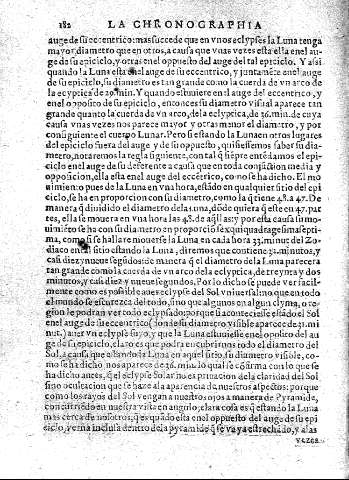 182 LA CHRONOGRAPHIA
auge de su eccentrico: mas sucede que en vnos eclypses la Luna tenga
mayor diametro que en otros, a causa que vnas vezes esta ella enel au-
ge de su epiciclo, y otras enel oppuesto del auge del tal epiciclo. Y assi
quando la Luna esta enel auge de su eccentrico, y juntamẽte enel auge
de su epiciclo, su diametro se nos parece tan grande como la cuerda de vn arco de
la ecyptica de min. Y quando estuuiere en el auge del eccentrico, y
en el opposito de su epiciclo, entonces su diametro visual aparece tan
grande quanto la cuerda de vn arco, dela eclyptica, de 36. min. de cuya
causa vnas vezes nos parece mayor y otras menor el diametro, y por
consiguiente el cuerpo Lunar. Pero si estando la Luna en otros lugares
del epiciclo fuera del auge y de su opuesto, quisiessemos saber su dia-
metro, notaremos la regla siguiente, con tal q̃ siẽpre entẽdamos el epi-
ciclo enel auge de su deferente a causa que en toda conjunction media y
opposicion, ella esta enel auge del eccẽtrico, como se ha dicho. El mo
uimiento pues de la Luna en vna hora, estãdo en qualquier sitio del epi
ciclo, se ha en proporcion con su diametro, como la q̃ tiene 48. a 47. De
manera q̃ diuidido el diametro dela Luna, dõde quiera q̃ este en 47. par
tes, ella se mouera en vna hora las 48. de aq̃llas: y por esta causa su mo-
uimiẽto se ha con su diametro en proporciõ sexquiquadragesimaseptiˉ
ma, como si se hallare mouerse la Luna en cada hora 33. minut. del Zo-
diaco en el sitio estando la Luna, diremos que contiene 32. minutos, y
cas diez y nueue segũdos: de manera q̃ el diametro dela Luna parecera
tan grande como la cuerda de vn arco dela eclyptica, de treynta y dos
minutos, y casi diez y nueue segundos. Por lo dicho se puede ver facil-
mente como es possible auer eclypse del Sol vniuersal mo que en todo
el mundo se escurezca del todo, sino que algunos en algun clyma, o re-
gio le podran ver todo eclypsado: porque si acontecesse estãdo el Sol
enel auge de su eccentrico (donde su diametro visible aparece de 31. mi
nut.) auer vn eclypse suyo, y que la Luna estuuiesse enel opposito del au
ge de su epiciclo, claro es que podra encubrirnos todo el diametro del
Sol, a causa que estando la Luna en aquel sitio, su diametro visible, co-
mo se ha dicho nos aparece de 36. min. lo qual se cõfirma con lo que se
ha dicho antes, q̃ el eclypse Solar no es priuacion dela claridad del Sol
sino occultacion que se haze ala aparencia de nuestros aspectos: porque
como los rayos del Sol vengan a nuestros ojos a manera de Pyramide,
concurriẽdo en nuestra vista en angulo, clara cosa es q̃ estando la Luna
mas cerca de nosotros, q̃ es quãdo esta enel oppuesto del auge de su epi
ciclo, y en a inclusa dentro dela pyramide q̃ se vaya estrechado, y a las
vezes